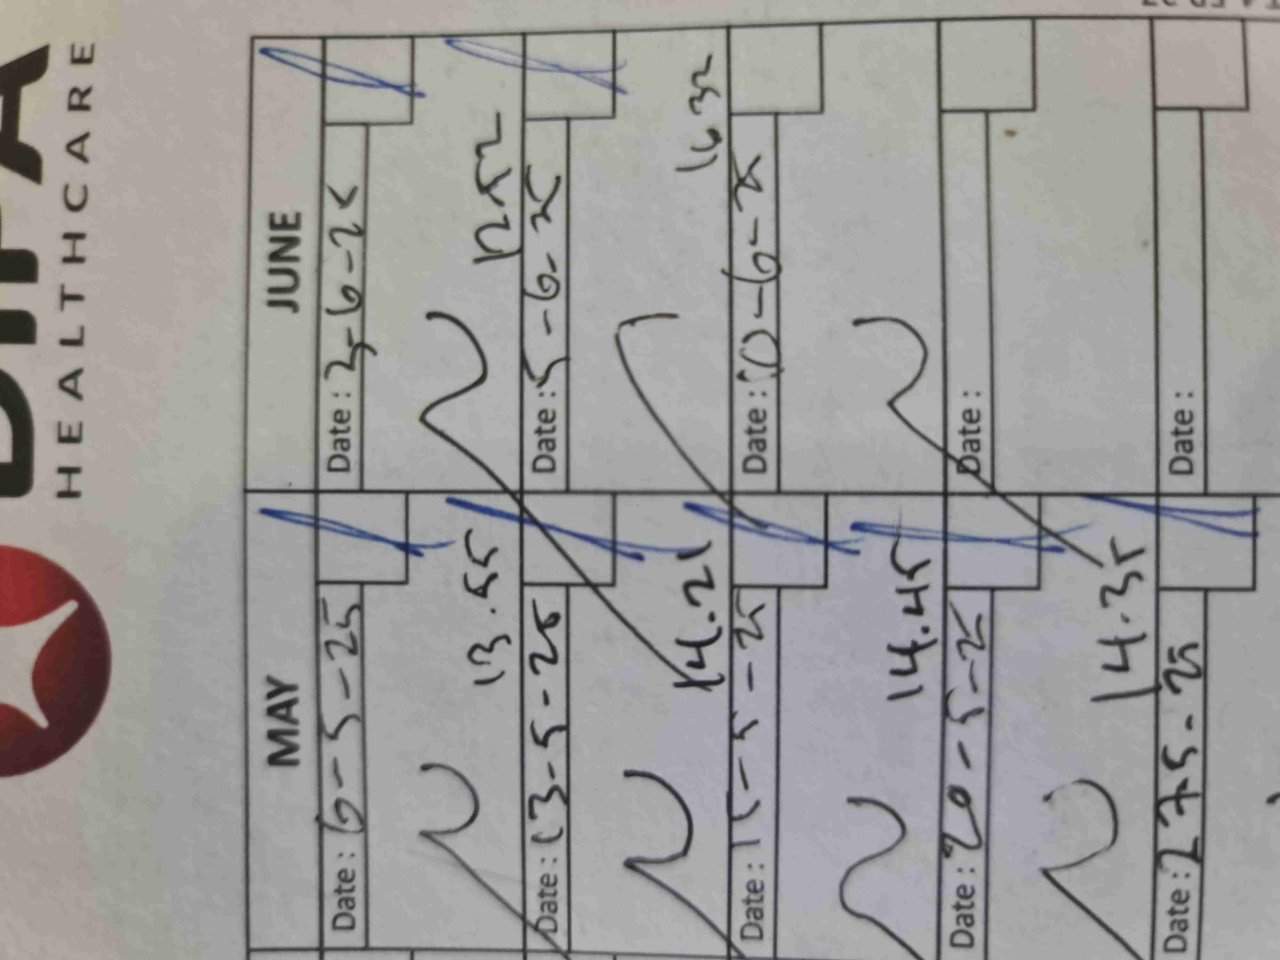 HEALTHCARE
MAY
JUNE
Date: 6-5-25
Date: 3-6-25
13.55
1252
Date: 13-5-25
Date: 5-6-25
14.21
1632
Date: 15-5-25
Date: 10-6-25
14.45
Date: 20-5-25
Date:
14.35
Date: 275-25
Date: